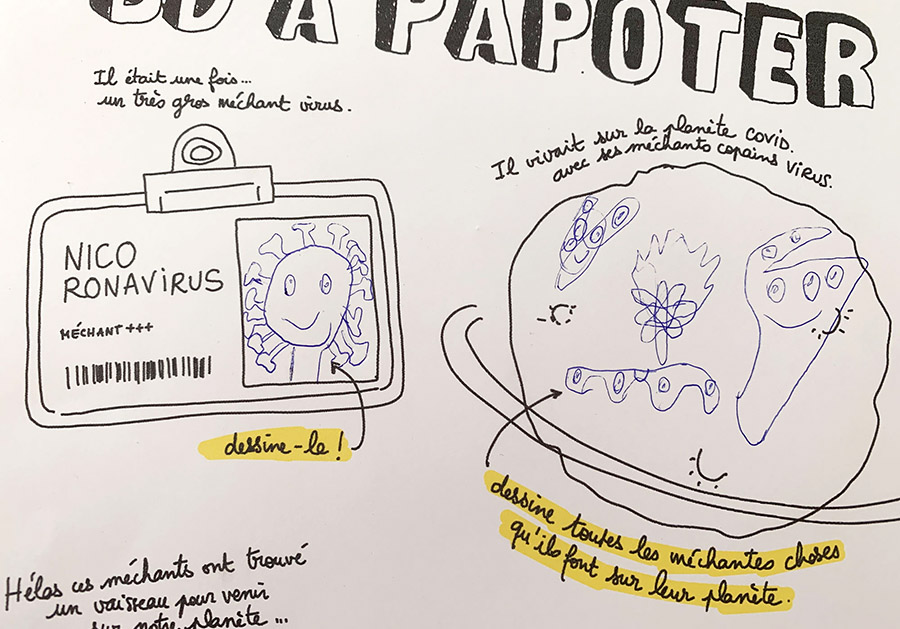 BD À PAPOTER
Il était une fois...
un très gros méchant virus.
Il vivait sur la planète covid.
avec ses méchants copains virus.
NICO
RONAVIRUS
MÉCHANT +++
dessine-le !
dessine toutes les méchantes choses
qu'ils font sur leur planète.
Hélas ces méchants ont trouvé
un vaisseau pour venir
sur notre planète ...